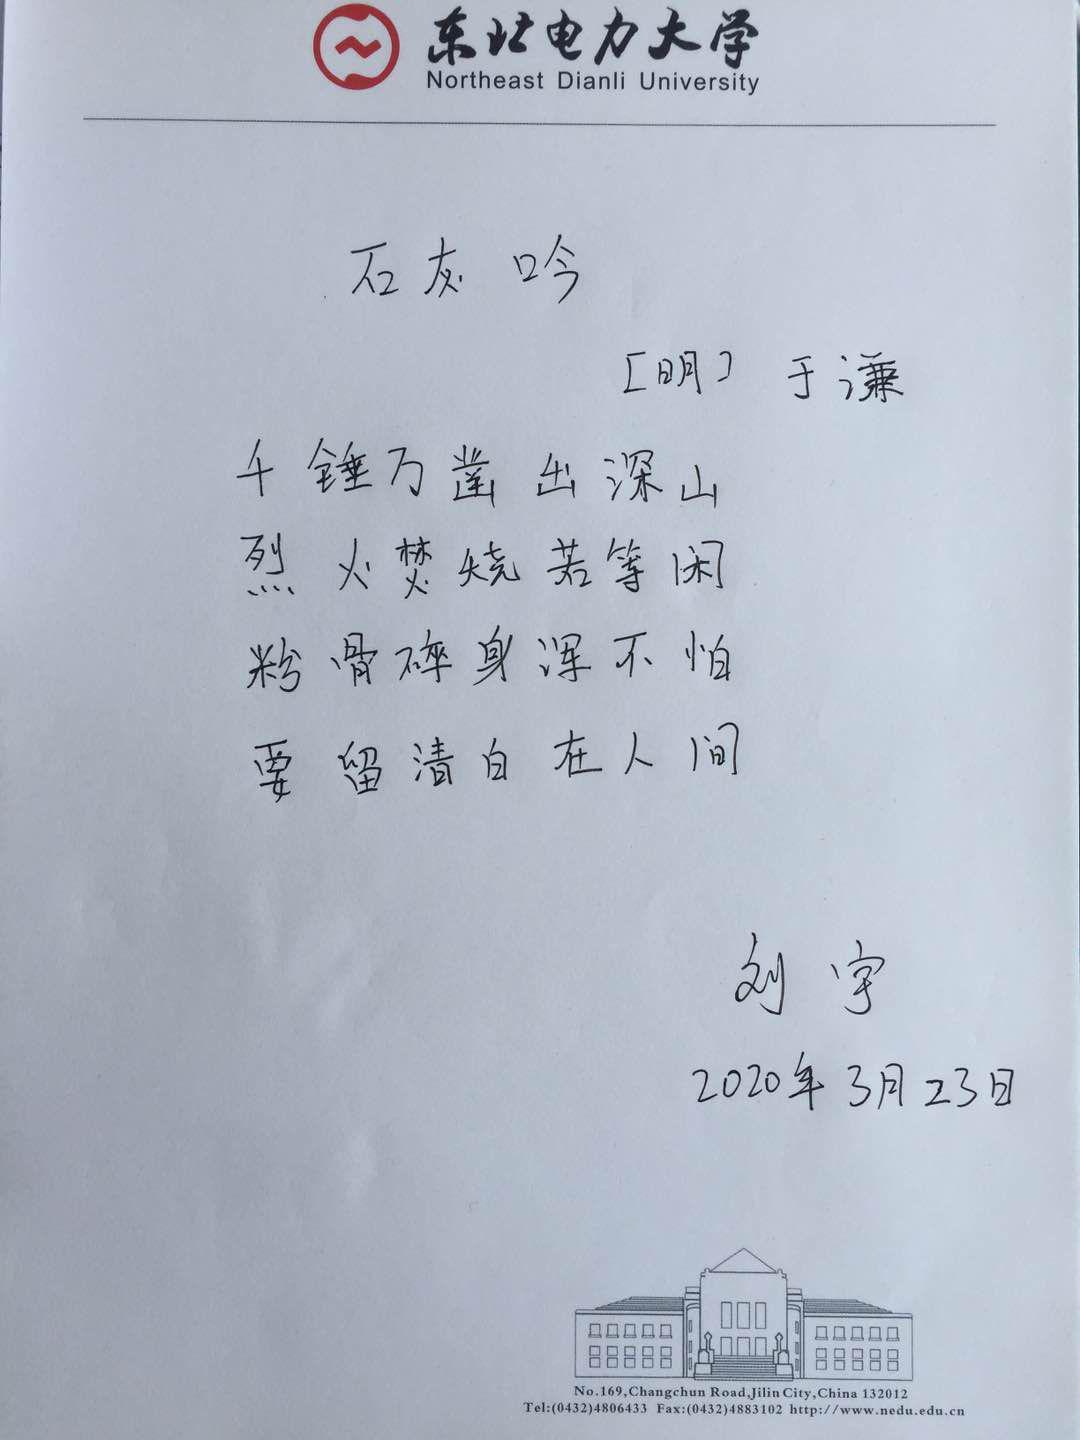 东北电力大学
Northeast Dianli University
石灰吟
[明] 于谦
千锤万凿出深山
烈火焚烧若等闲
粉骨碎身浑不怕
要留清白在人间
刘宇
2020年3月23日
No.169,Changchun Road,Jilin City,China 132012
Tel:(0432)4806433 Fax:(0432)4883102 http://www.nedu.edu.cn